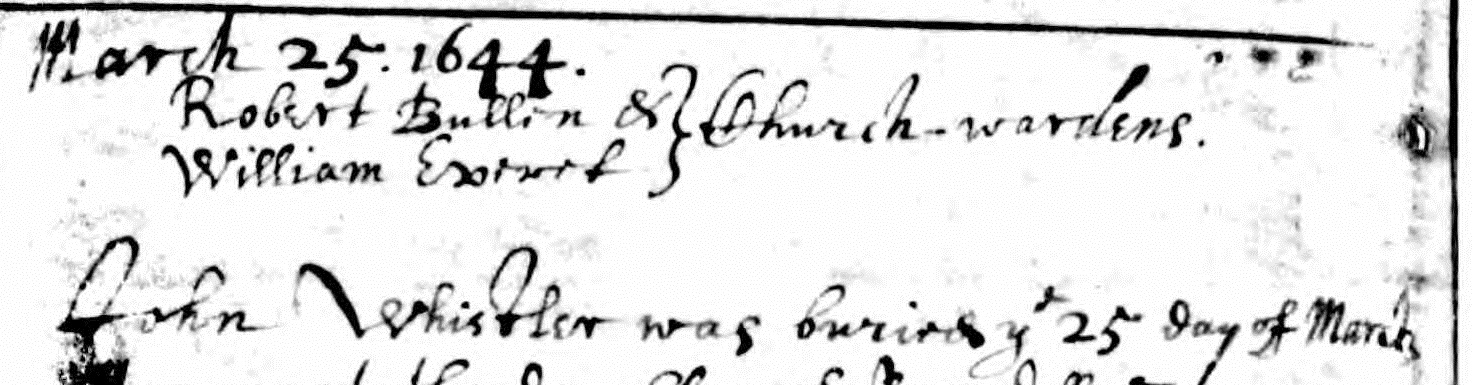 March 25. 1644.
Robert Bullen & } Church-wardens.
William Everet
John Whistler was buried yᵉ 25 day of March